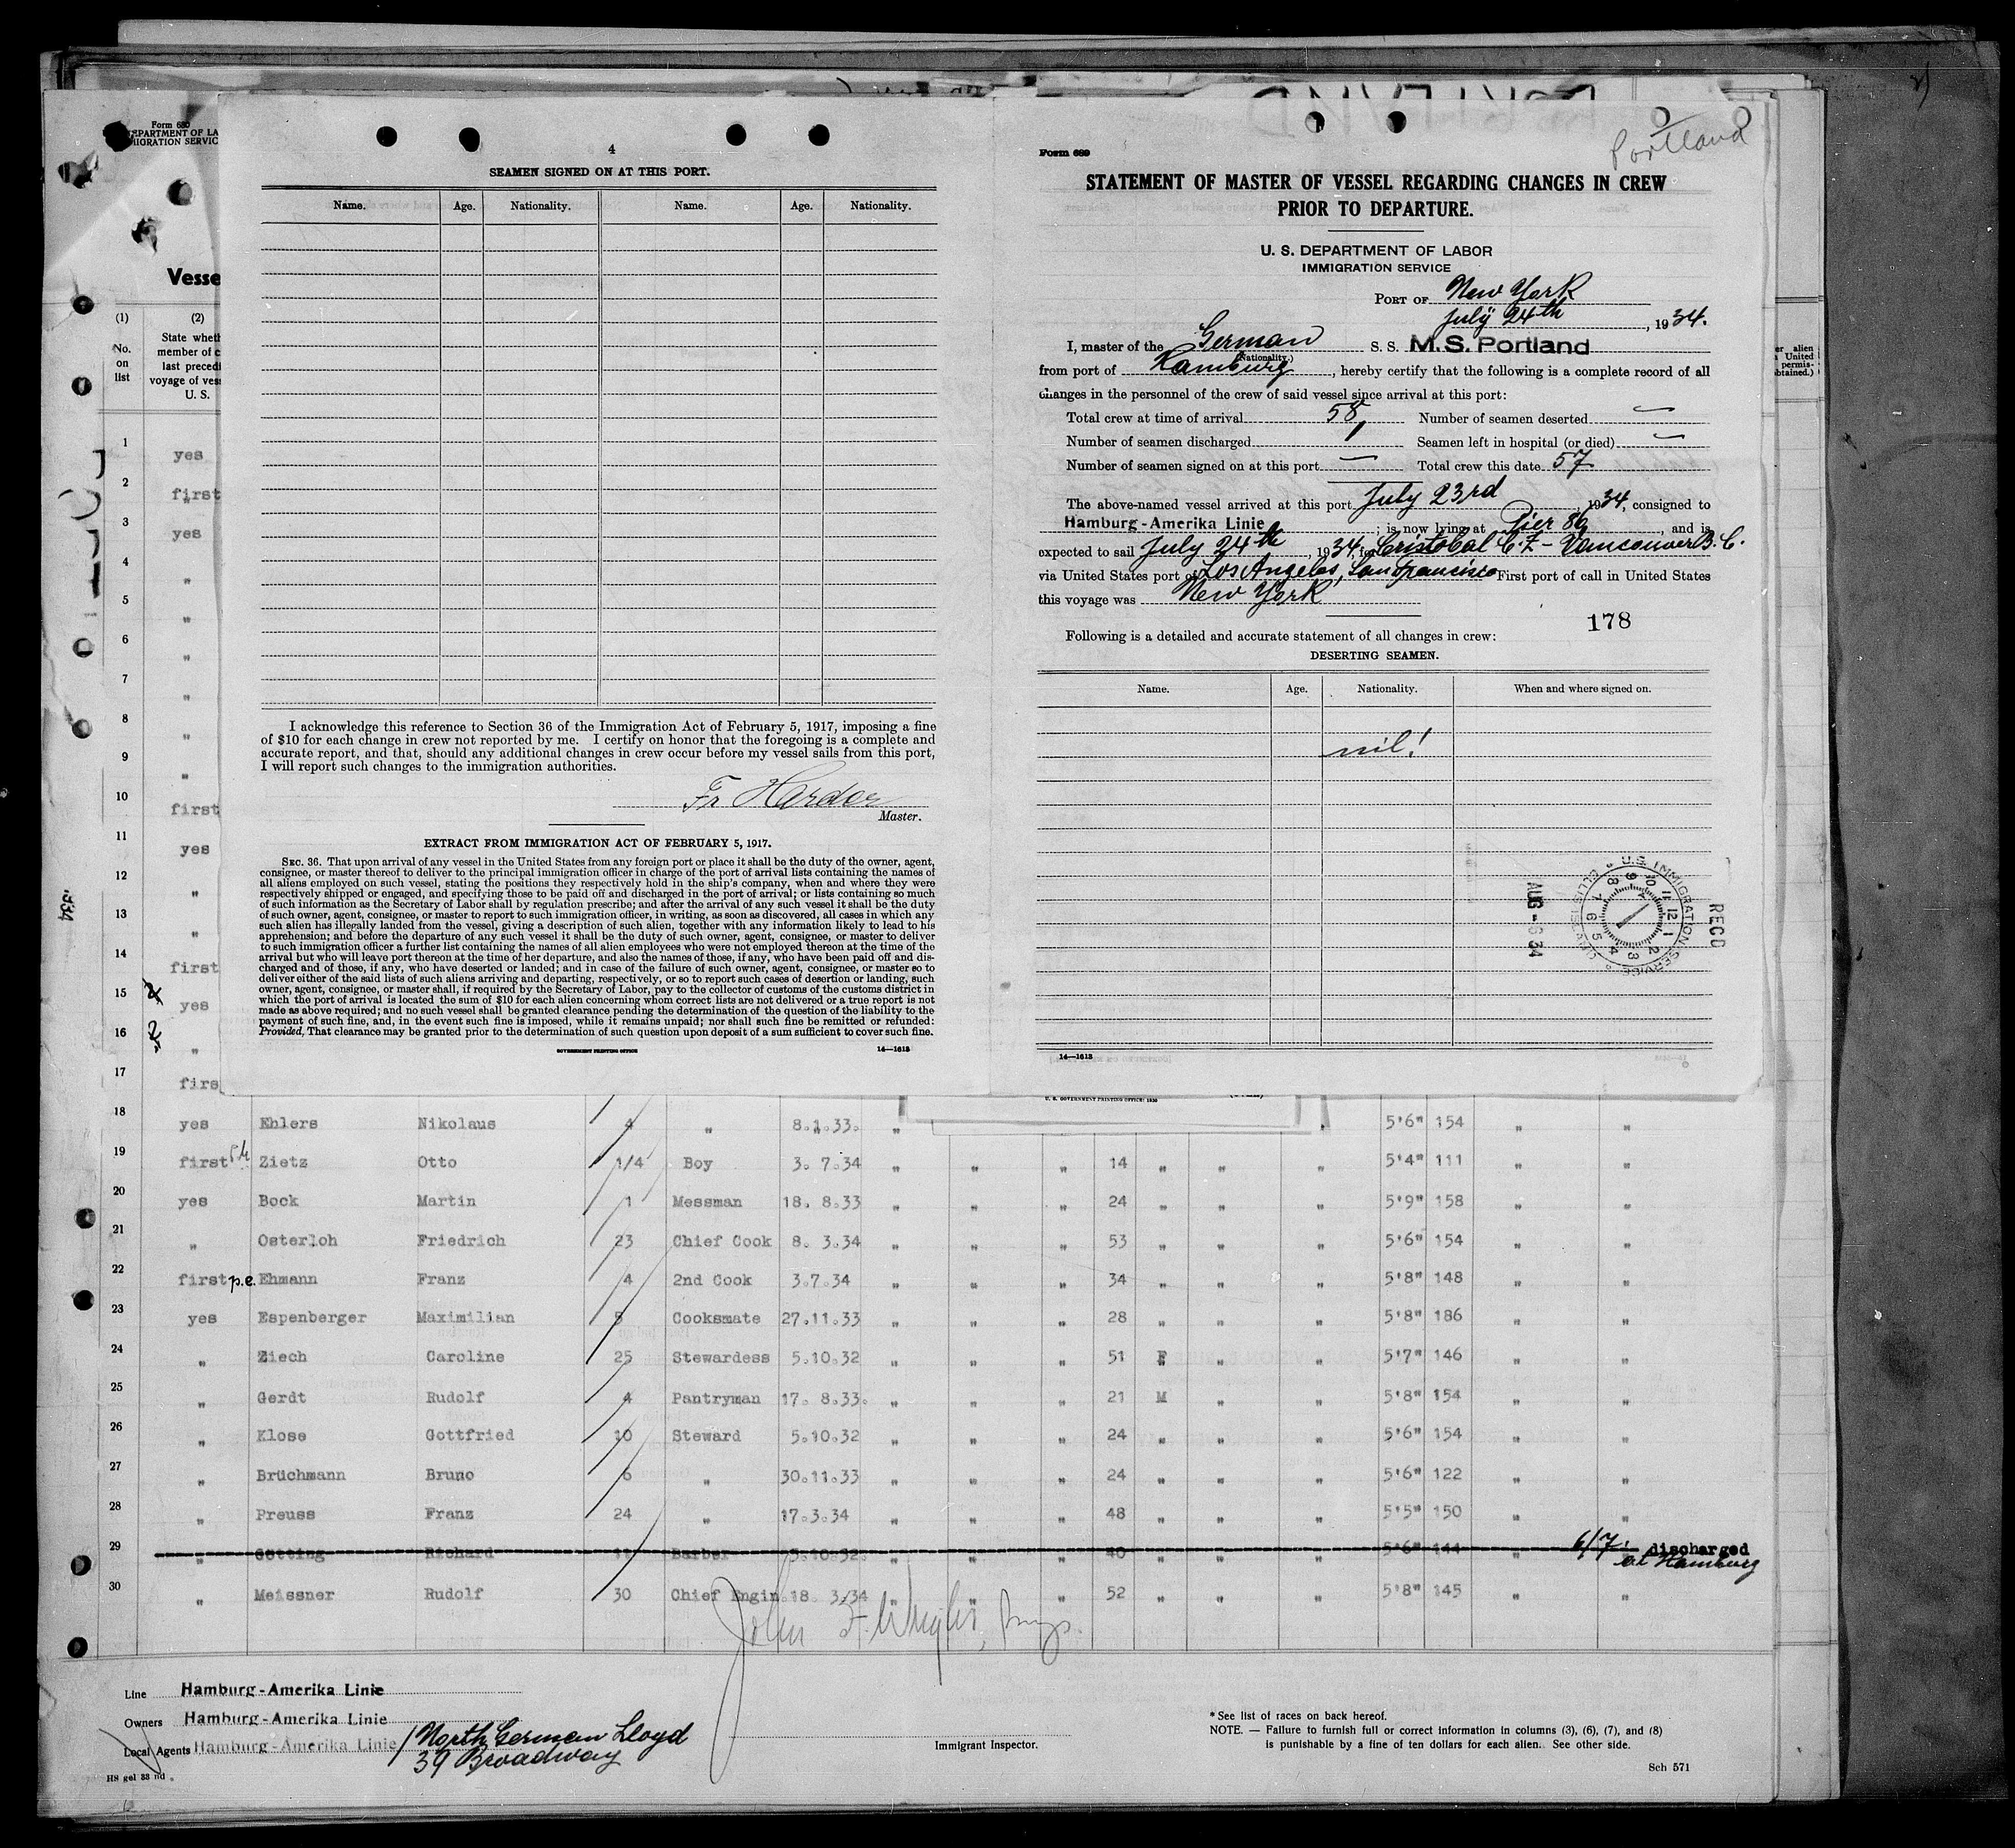 Form 680
DEPARTMENT OF LA
MIGRATION SERVIC
Vesse
(1)
(2)
No.
on
list
State wheth
member of c
last precedi
voyage of ves
U. S.
1 yes
2 first
3 yes
4 "
5 "
6 "
7 "
8 "
9 "
10 first
11 yes
12 "
13 "
14 first
15 yes
16 "
17 firs
4
SEAMEN SIGNED ON AT THIS PORT.
Name. Age. Nationality. Name. Age. Nationality.
I acknowledge this reference to Section 36 of the Immigration Act of February 5, 1917, imposing a fine
of $10 for each change in crew not reported by me. I certify on honor that the foregoing is a complete and
accurate report, and that, should any additional changes in crew occur before my vessel sails from this port,
I will report such changes to the immigration authorities.
Fr Harder
Master.
EXTRACT FROM IMMIGRATION ACT OF FEBRUARY 5, 1917.
SEC. 36. That upon arrival of any vessel in the United States from any foreign port or place it shall be the duty of the owner, agent,
consignee, or master thereof to deliver to the principal immigration officer in charge of the port of arrival lists containing the names of
all aliens employed on such vessel, stating the positions they respectively hold in the ship's company, when and where they were
respectively shipped or engaged, and specifying those to be paid off and discharged in the port of arrival; or lists containing so much
of such information as the Secretary of Labor shall by regulation prescribe; and after the arrival of any such vessel it shall be the duty
of such owner, agent, consignee, or master to report to such immigration officer, in writing, as soon as discovered, all cases in which any
such alien has illegally landed from the vessel, giving a description of such alien, together with any information likely to lead to his
apprehension; and before the departure of any such vessel it shall be the duty of such owner, agent, consignee, or master to deliver
to such immigration officer a further list containing the names of all alien employees who were not employed thereon at the time of the
arrival but who will leave port thereon at the time of her departure, and also the names of those, if any, who have been paid off and dis-
charged and of those, if any, who have deserted or landed; and in case of the failure of such owner, agent, consignee, or master so to
deliver either of the said lists of such aliens arriving and departing, respectively, or so to report such cases of desertion or landing, such
owner, agent, consignee, or master shall, if required by the Secretary of Labor, pay to the collector of customs of the customs district in
which the port of arrival is located the sum of $10 for each alien concerning whom correct lists are not delivered or a true report is not
made as above required; and no such vessel shall be granted clearance pending the determination of the question of the liability to the
payment of such fine, and, in the event such fine is imposed, while it remains unpaid; nor shall such fine be remitted or refunded:
Provided, That clearance may be granted prior to the determination of such question upon deposit of a sum sufficient to cover such fine.
GOVERNMENT PRINTING OFFICE
14—1613
Portland
Form 689
STATEMENT OF MASTER OF VESSEL REGARDING CHANGES IN CREW
PRIOR TO DEPARTURE.
U. S. DEPARTMENT OF LABOR
IMMIGRATION SERVICE
PORT OF New York
July 24th, 1934.
I, master of the German S. S. M.S. Portland
(Nationality.)
from port of Hamburg, hereby certify that the following is a complete record of all
changes in the personnel of the crew of said vessel since arrival at this port:
Total crew at time of arrival 58 Number of seamen deserted —
Number of seamen discharged 1 Seamen left in hospital (or died) —
Number of seamen signed on at this port — Total crew this date 57
The above-named vessel arrived at this port July 23rd 1934, consigned to
Hamburg-Amerika Linie; is now lying at Pier 86, and is
expected to sail July 24th, 1934, for Cristobal C.Z - Vancouver B.C.
via United States port of Los Angeles, San Francisco First port of call in United States
this voyage was New York
178
Following is a detailed and accurate statement of all changes in crew:
DESERTING SEAMEN.
Name. Age. Nationality. When and where signed on.
nil!
RECD
U.S. IMMIGRATION SERVICE
ELLIS ISLAND
AUG - 6 34
14—1613
er alien
United
permis-
btained.)
U. S. GOVERNMENT PRINTING OFFICE: 1930
18 yes Ehlers Nikolaus 4 " 8.1.33. " " 5'6" 154 " "
19 first Zietz Otto 1/4 Boy 3. 7.34 " " " 14 " " " 5'4" 111 " "
20 yes Bock Martin 1 Messman 18. 8.33 " " " 24 " " " 5'9" 158 " "
21 " Osterloh Friedrich 23 Chief Cook 8. 3.34 " " " 53 " " " 5'6" 154 " "
22 first p.e. Ehmann Franz 4 2nd Cook 3.7.34 " " " 34 " " " 5'8" 148 " "
23 yes Espenberger Maximilian 5 Cooksmate 27.11.33 " " " 28 " " " 5'8" 186 " "
24 " Ziech Caroline 25 Stewardess 5.10.32 " " " 51 F " " 5'7" 146 " "
25 " Gerdt Rudolf 4 Pantryman 17. 8.33. " " " 21 M " " 5'8" 154 " "
26 " Klose Gottfried 10 Steward 5.10.32 " " " 24 " " " 5'6" 154 " "
27 " Brüchmann Bruno 6 " 30.11.33 " " " 24 " " " 5'6" 122 " "
28 " Preuss Franz 24 " 17.3.34 " " " 48 " " " 5'5" 150 " "
29 " Götting Richard 11 Barber 5.10.32. " " " 40 " " " 5'6" 144 " 6/7. discharged
at Hamburg
30 " Meissner Rudolf 30 Chief Engin. 18. 3.34 " " " 52 " " " 5'8" 145 " "
Line Hamburg-Amerika Linie
Owners Hamburg-Amerika Linie
Local Agents Hamburg-Amerika Linie / North German Lloyd
39 Broadway
HS gel 33 nd
Immigrant Inspector.
* See list of races on back hereof.
NOTE. — Failure to furnish full or correct information in columns (3), (6), (7), and (8)
is punishable by a fine of ten dollars for each alien. See other side.
Sch 571